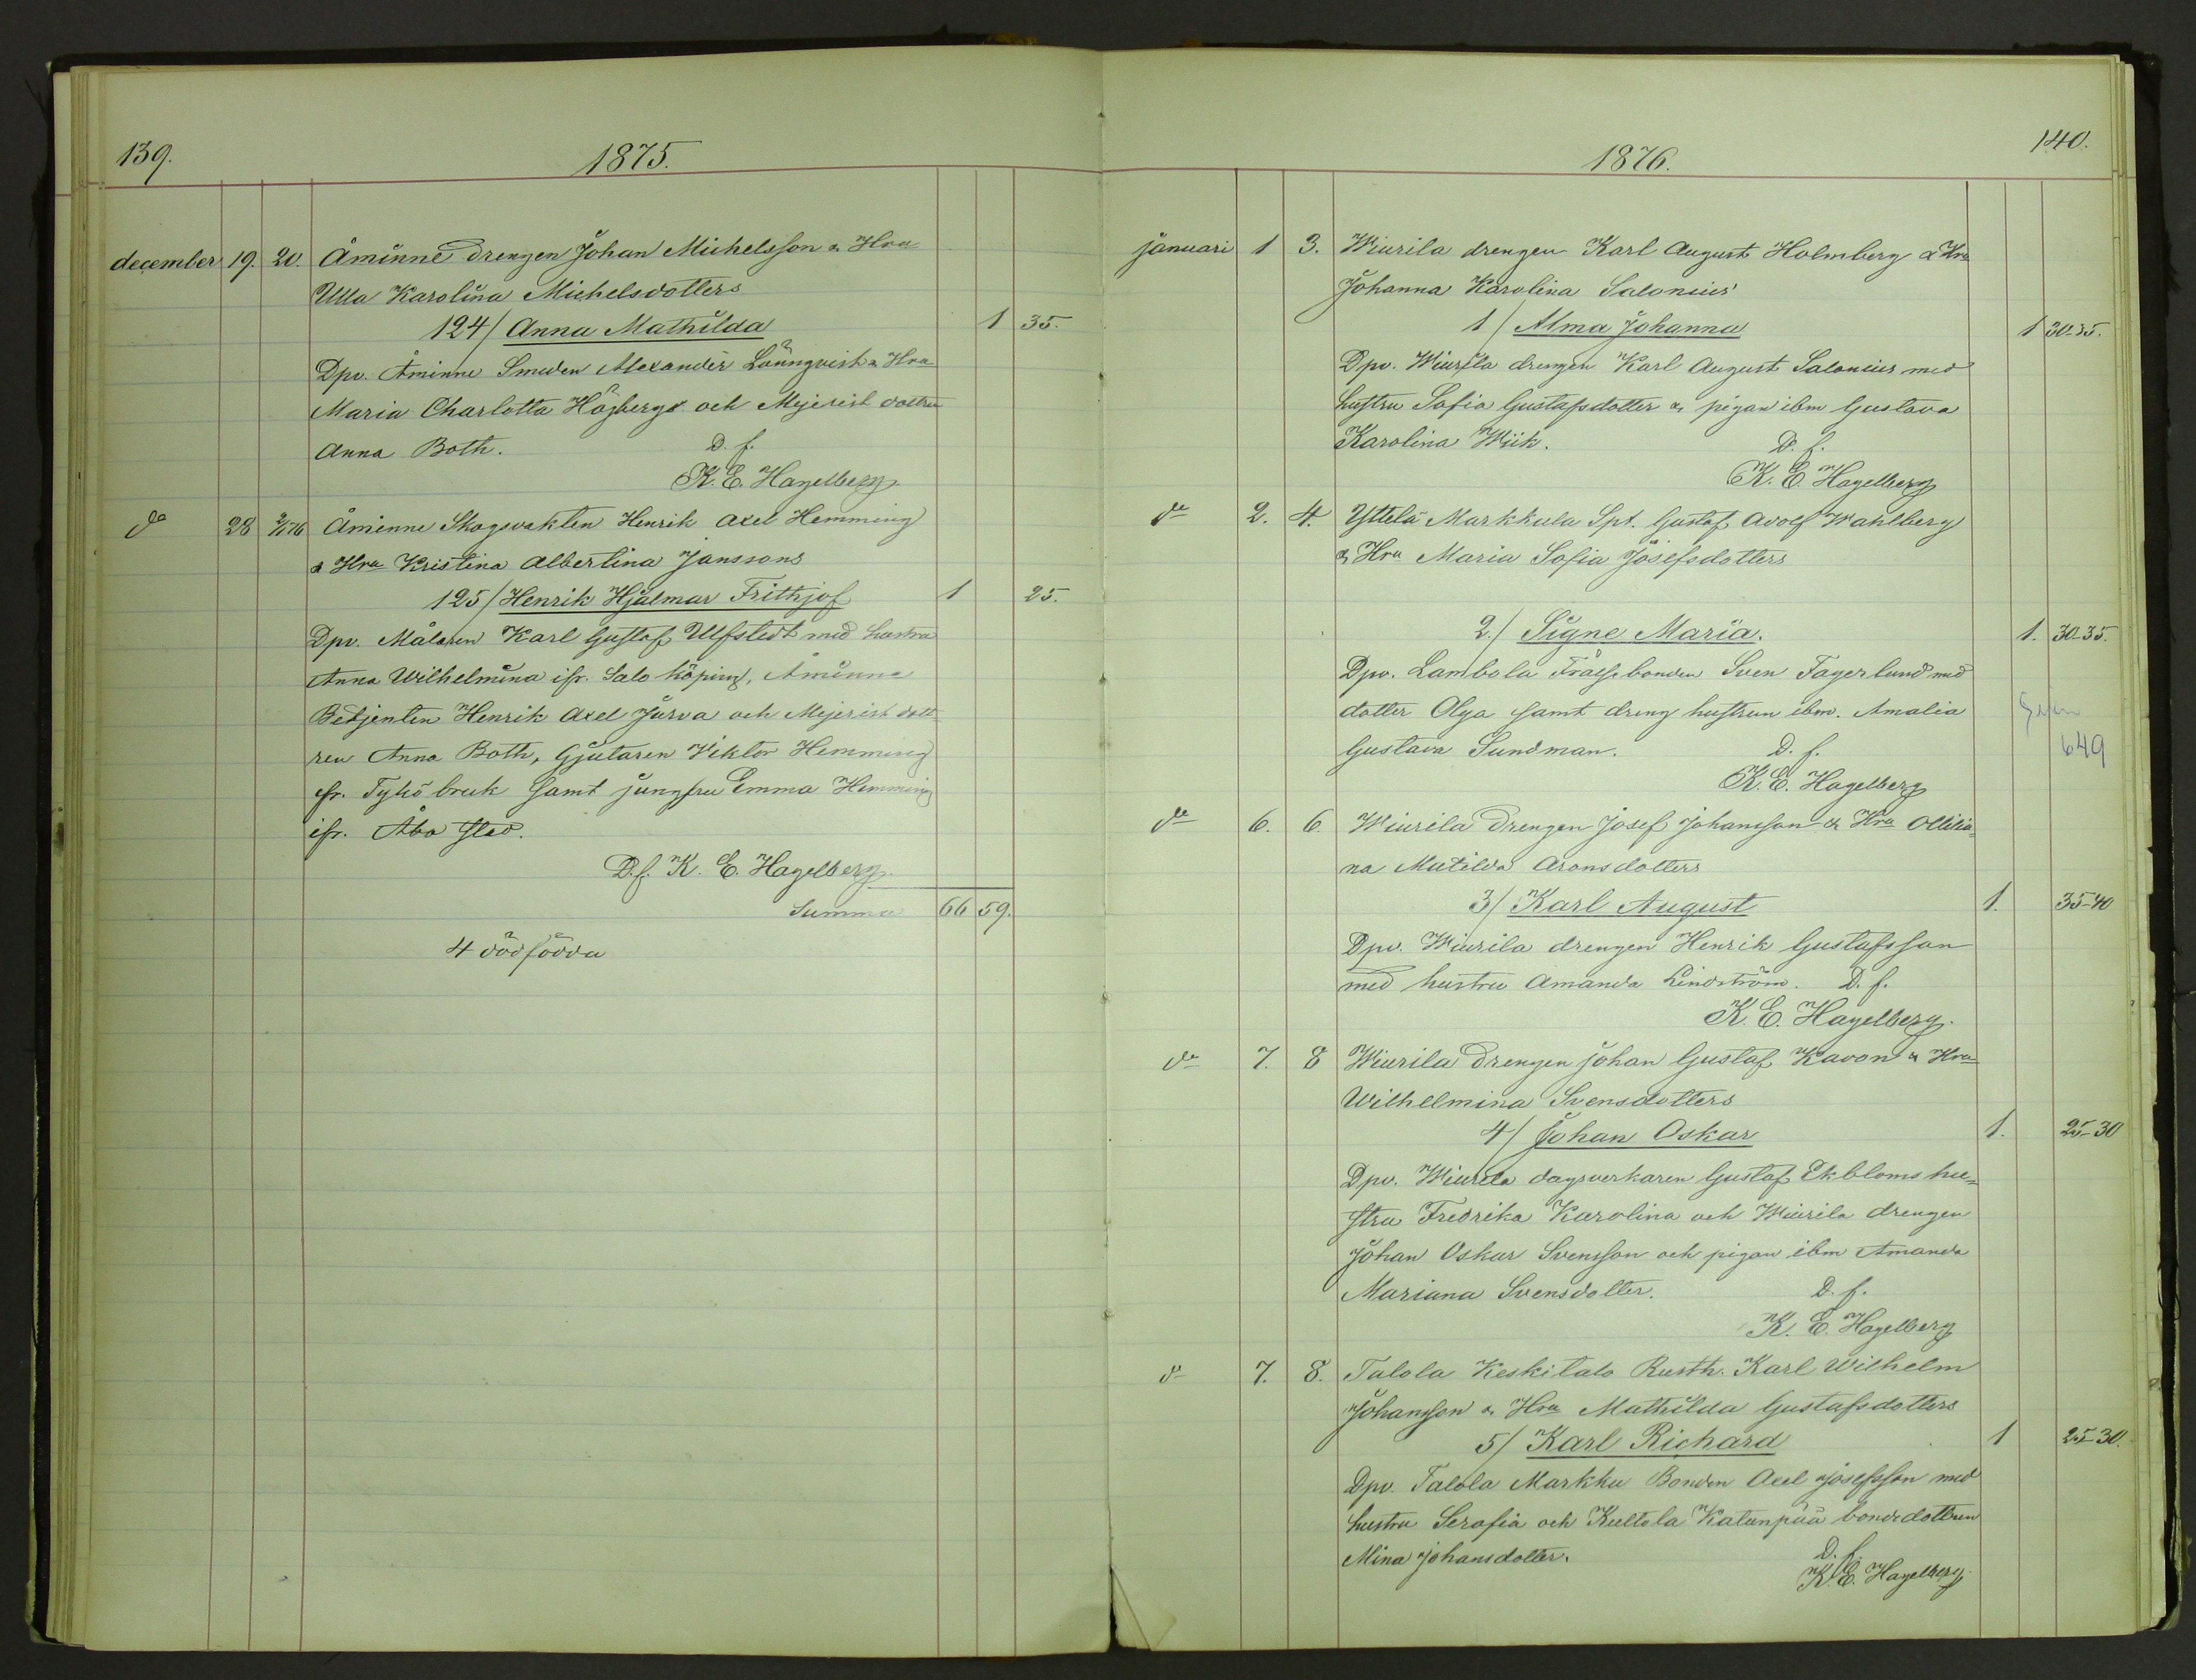 139.
1875.
december 19. 20. Åminne drengen Johan Michelsson & Hru
Ulla Karolina Michelsdotters
124/ Anna Mathilda 1 35.
Dpv. Åminne Smeden Alexander Lönnqvist & Hru
Maria Charlotta Högbergs och Mejerist dottren
Anna Both. D. f.
K. E. Hagelberg.
do 28 2/1 76 Åminne Skogvakten Henrik Axel Hemming
& Hru Kristina Albertina Janssons
125/ Henrik Hjalmar Frithjof 1 25.
Dpv. Målaren Karl Gustaf Ulfstedt med hustru
Anna Wilhelmina ifr. Salo köping, Åminne
Betjenten Henrik Axel Jurva och Mejerist dott
ren Anna Both, Gjutaren Viktor Hemming
fr. Tykö bruk samt jungfru Emma Hemming
ifr. Åbo stad.
D. f. K. E. Hagelberg.
Summa 66 59.
4 dödfödda
140.
1876.
januari 1 3. Wiurila drengen Karl August Holmberg & Hru
Johanna Karolina Salonius
1/ Alma Johanna 1 30-35.
Dpv. Wiurila drengen Karl August Salonius med
hustru Sofia Gustafsdotter & pigan ibm Gustava
Karolina Wiik. D. f.
K. E. Hagelberg
do 2. 4. Yttelä Markkula Spt. Gustaf Adolf Wahlberg
& Hru Maria Sofia Josefsdotters
2./ Signe Maria. 1. 30-35.
Dpv. Lambola Frälsebonden Sven Fagerlund med
dotter Olga samt dreng hustrun ibm. Amalia
Gustava Sundman. D. f.
649
K. E. Hagelberg
do 6. 6. Wiurila Drengen Josef Johansson & Hru
na Matilda Aronsdotters
3/ Karl August 1. 35-40
Dpv. Wiurila drengen Henrik Gustafsson
med hustru Amanda Lindström. D. f.
K. E. Hagelberg.
do 7. 8 Wiurila Drengen Johan Gustaf Kavon & Hru
Wilhelmina Svensdotters
4/ Johan Oskar 1. 25-30
Dpv. Wiurila dagsverkaren Gustaf Ekbloms hu-
stru Fredrika Karolina och Wiurila drengen
Johan Oskar Svensson och pigan ibm Amanda
Mariana Svensdotter. D. f.
K. E. Hagelberg
do 7. 8. Talola Keskitalo Rusth. Karl Wilhelm
Johansson & Hru Mathilda Gustafsdotters
5/ Karl Richard 1 25-30.
Dpv. Talola Markku Bonden Axel Josefsson med
hustru Serafia och Kultola Katunpää bondedottren
Mina Johansdotter. D. f.
K. E. Hagelberg.